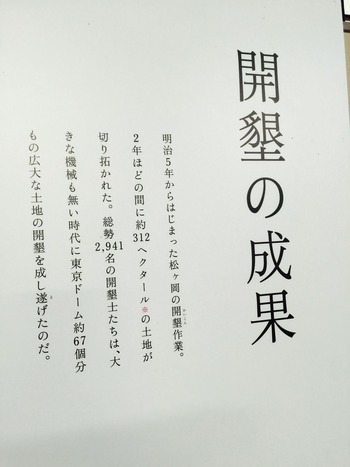 開墾の成果
明治5年からはじまった松ヶ岡の開墾作業。
かいこん
2年ほどの間に約312ヘクタール※の土地が
切り拓かれた。総勢2,941名の開墾士たちは、大
きな機械も無い時代に東京ドーム約67個分
もの広大な土地の開墾を成し遂げたのだ。
と